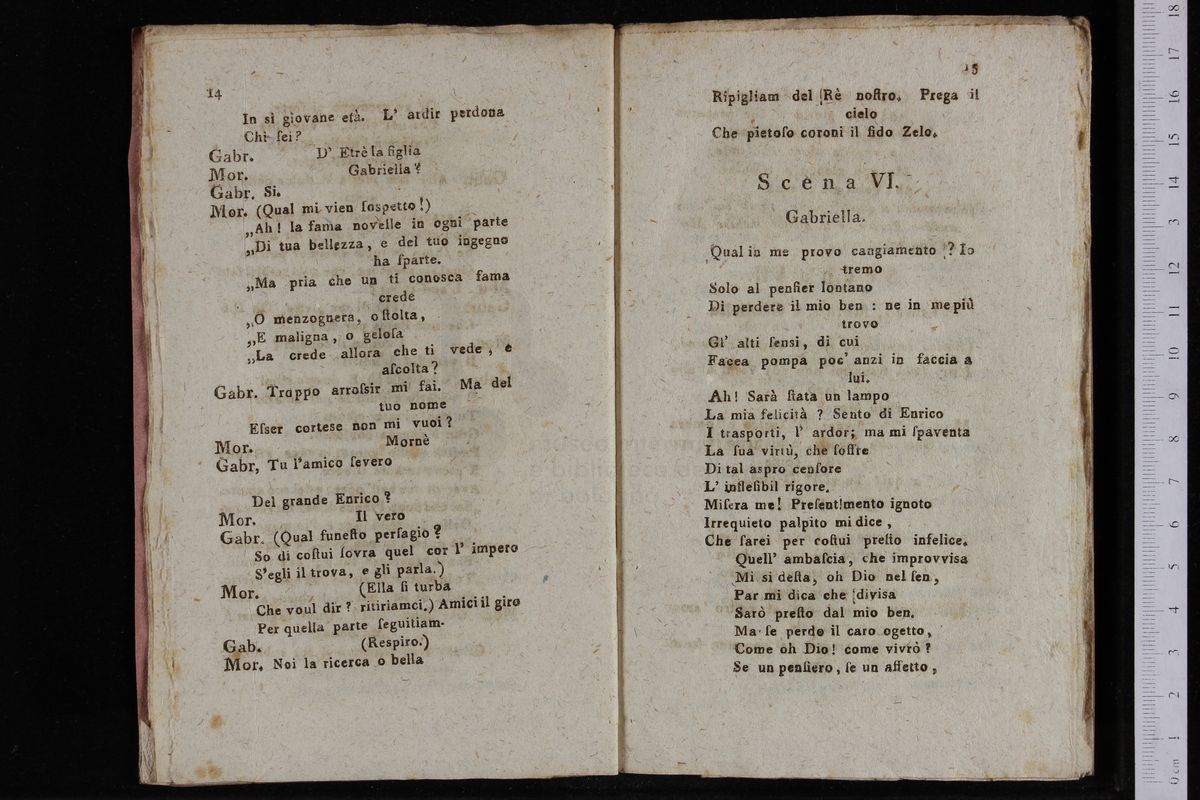 14
In sì giovane età. L' ardir perdona
Chi ſei?
Gabr. D' Etrè la figlia
Mor. Gabriella?
Gabr. Si.
Mor. (Qual mi vien ſoſpetto!)
„Ah! la fama novelle in ogni parte
„Di tua bellezza, e del tuo ingegno
ha ſparte.
„Ma pria che un ti conosca fama
crede
„O menzognera, o ſtolta,
„E maligna, o geloſa
„La crede allora che ti vede, e
aſcolta?
Gabr. Troppo arroſsir mi fai. Ma del
tuo nome
Eſser cortese non mi vuoi?
Mor. Mornè
Gabr, Tu l'amico ſevero
Del grande Enrico?
Mor. Il vero
Gabr. (Qual funeſto perſagio?
So di coſtui ſovra quel cor l' impero
S'egli il trova, e gli parla.)
Mor. (Ella ſi turba
Che voul dir? ritiriamci.) Amici il giro
Per quella parte ſeguitiam.
Gab. (Respiro.)
Mor. Noi la ricerca o bella
15
Ripigliam del Rè noſtro. Prega il
cielo
Che pietoſo coroni il fido Zelo.
Scena VI.
Gabriella.
Qual in me provo cangiamento!? Io
tremo
Solo al penſier lontano
Di perdere il mio ben : ne in me più
trovo
Gl' alti ſensi, di cui
Facea pompa poc' anzi in faccia a
lui.
Ah! Sarà ſtata un lampo
La mia felicità ? Sento di Enrico
I trasporti, l' ardor; ma mi ſpaventa
La ſua virtù, che ſoffre
Di tal aspro cenſore
L' infleſibil rigore.
Miſera me! Preſentimento ignoto
Irrequieto palpito mi dice,
Che ſarei per coſtui preſto infelice.
Quell' ambaſcia, che improvvisa
Mi si deſta, oh Dio nel ſen,
Par mi dica che divisa
Sarò preſto dal mio ben.
Ma ſe perdo il caro ogetto,
Come oh Dio! come vivrò?
Se un penſiero, ſe un affetto,